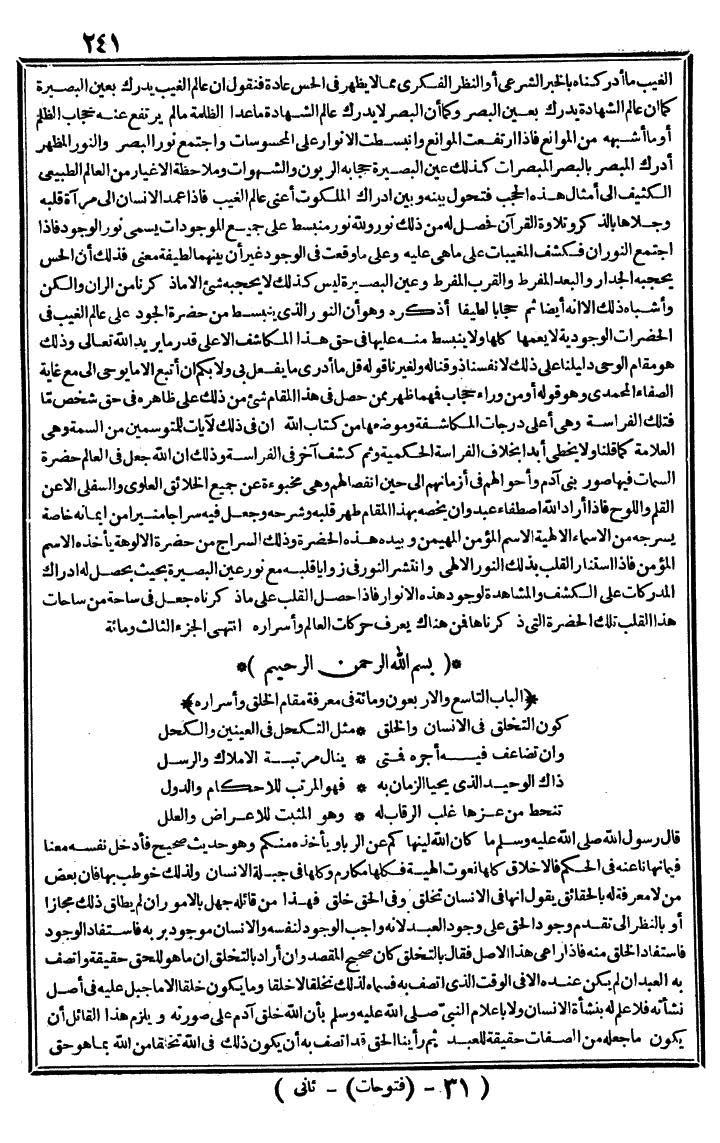 ٢٤١
الغيب ما أدركناه بالخبر الشرعى أو النظر الفكرى مما لا يظهر فى الحس عادة فنقول ان عالم الغيب يدرك بعين البصيرة
كما ان عالم الشهادة يدرك بعين البصر وكما أن البصر لا يدرك عالم الشهادة ماعدا الظلمة مالم يرتفع عنه حجاب الظلم
أو ما أشبهه من الموانع فاذا ارتفعت الموانع وانبسطت الانوار على المحسوسات واجتمع نور البصر والنور المظهر
أدرك المبصر بالبصر المبصرات كذلك عين البصيرة حجابه الريون والشهوات وملاحظة الاغيار من العالم الطبيعى
الكثيف الى أمثال هذه الحجب فتحول بينه وبين ادراك الملكوت أعنى عالم الغيب فاذا عمد الانسان الى مرآة قلبه
وجلاها بالذكر وتلاوة القرآن فحصل له من ذلك نور ولله نور منبسط على جميع الموجودات يسمى نور الوجود فاذا
اجتمع النوران فكشف المغيبات على ماهى عليه وعلى ما وقعت فى الوجود غير أن بينهما لطيفة معنى فذلك أن الحس
يحجبه الجدار والبعد المفرط والقرب المفرط وعين البصيرة ليس كذلك لا يحجبه شئ الا ماذكرنا من الران والكن
وأشباه ذلك الا انه أيضا ثم حجابا لطيفا أذكره وهو أن النور الذى ينبسط من حضرة الجود على عالم الغيب فى
الحضرات الوجودية لا يعمها كلها ولا ينبسط منه عليها فى حق هذا المكاشف الا على قدر ما يريد الله تعالى وذلك
هو مقام الوحى دليلنا على ذلك لانفسنا ذوقنا له ولغيرنا قوله قل ما أدرى ما يفعل بى ولا بكم ان أتبع الا ما يوحى الى مع غاية
الصفاء المحمدى وهو قوله أو من وراء حجاب فهما ظهر ممن حصل فى هذا المقام شئ من ذلك على ظاهره فى حق شخص مّا
فتلك الفراسة وهى أعلى درجات المكاشفة وموضعها من كتاب الله ان فى ذلك لآيات للمتوسمين من السمة وهى
العلامة كما قلنا ولا يخطى أبدا بخلاف الفراسة الحكمية وثم كشف آخر فى الفراسة وذلك ان الله جعل فى العالم حضرة
السمات فيها صور بنى آدم وأحوالهم فى أزمانهم الى حين انفصالهم وهى مخبوءة عن جميع الخلائق العلوى والسفلى الا عن
القلم واللوح فاذا أراد الله اصطفاء عبد وان يخصه بهذا المقام طهر قلبه وشرحه وجعل فيه سراجا منيرا من ايمانه خاصة
يسرجه من الاسماء الالهية الاسم المؤمن المهيمن وبيده هذه الحضرة وذلك السراج من حضرة الالوهة يأخذه الاسم
المؤمن فاذا استنار القلب بذلك النور الالهى وانتشر النور فى زوايا قلبه مع نور عين البصيرة بحيث يحصل له ادراك
المدركات على الكشف والمشاهدة لوجود هذه الانوار فاذا حصل القلب على ماذكرناه جعل فى ساحة من ساحات
هذا القلب تلك الحضرة التى ذكرناها فمن هناك يعرف حركات العالم وأسراره انتهى الجزء الثالث ومائة
*( بسم الله الرحمن الرحيم )*
﴿الباب التاسع والاربعون ومائة فى معرفة مقام الخلق وأسراره﴾
كون التخلق فى الانسان والخلق * مثل التكحل فى العينين والكحل
وان تضاعف فيه أجره فمتى * ينال مرتبة الاملاك والرسل
ذاك الوحيد الذى يحيا الزمان به * فهو المرتب للاحكام والدول
تنحط من عزها غلب الرقاب له * وهو المثبت للاعراض والعلل
قال رسول الله صلى الله عليه وسلم ما كان الله لينهاكم عن الربا ويأخذه منكم وهو حديث صحيح فأدخل نفسه معنا
فيما نهانا عنه فى الحكم فالاخلاق كلها نعوت الهية فكلها مكارم وكلها فى جبلة الانسان ولذلك خوطب بها فان بعض
من لا معرفة له بالحقائق يقول انها فى الانسان تخلق وفى الحق خلق فهذا من قائله جهل بالامور ان لم يطلق ذلك مجازا
أو بالنظر الى تقدم وجود الحق على وجود العبد لانه واجب الوجود لنفسه والانسان موجود بربه فاستفاد الوجود
فاستفاد الخلق منه فاذا راعى هذا الاصل فقال بالتخلق كان صحيح المقصد وان أراد بالتخلق ان ما هو للحق حقيقة واتصف
به العبد ان لم يكن عنده الا فى الوقت الذى اتصف به فسماه لذلك تخلقا لا خلقا وما يكون خلقا الا ما جبل عليه فى أصل
نشأته فلا علم له بنشأة الانسان ولا باعلام النبىّ صلى الله عليه وسلم بأن الله خلق آدم على صورته ويلزم هذا القائل أن
يكون ما جعله من الصفات حقيقة للعبد ثم رأينا الحق قد اتصف به أن يكون ذلك فى الله تخلقا من الله بما هو حق
( ٣١ - (فتوحات) - ثانى )